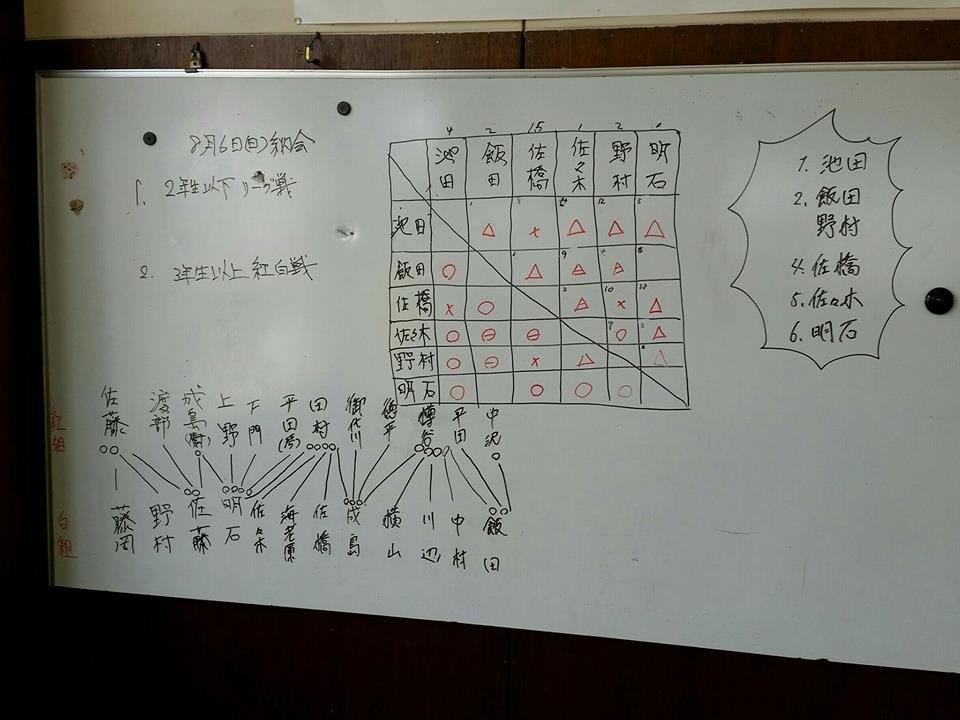 8月6日(日)納会
1. 2年生以下 リーグ戦
2. 3年生以上 紅白戦
4 2 15 1 2
池田 飯田 佐橋 佐々木 野村 明石
池田 △ × △ △ △
飯田 ○ △ △ △
佐橋 × ○ △ × △
佐々木 ○ ⊖ ⊖ ○ △
野村 ○ ⊖ × △ △
明石 ○ ○ ○ ○
1. 池田
2. 飯田
野村
4. 佐橋
5. 佐々木
6. 明石
紅組
佐藤 渡部 成島(樹) 上野 下門 平田(房) 田村 御代川 徳平 樽谷 平田 中沢
白組
藤岡 野村 佐藤 明石 佐々木 海老原 佐橋 成島 横山 川辺 中村 飯田